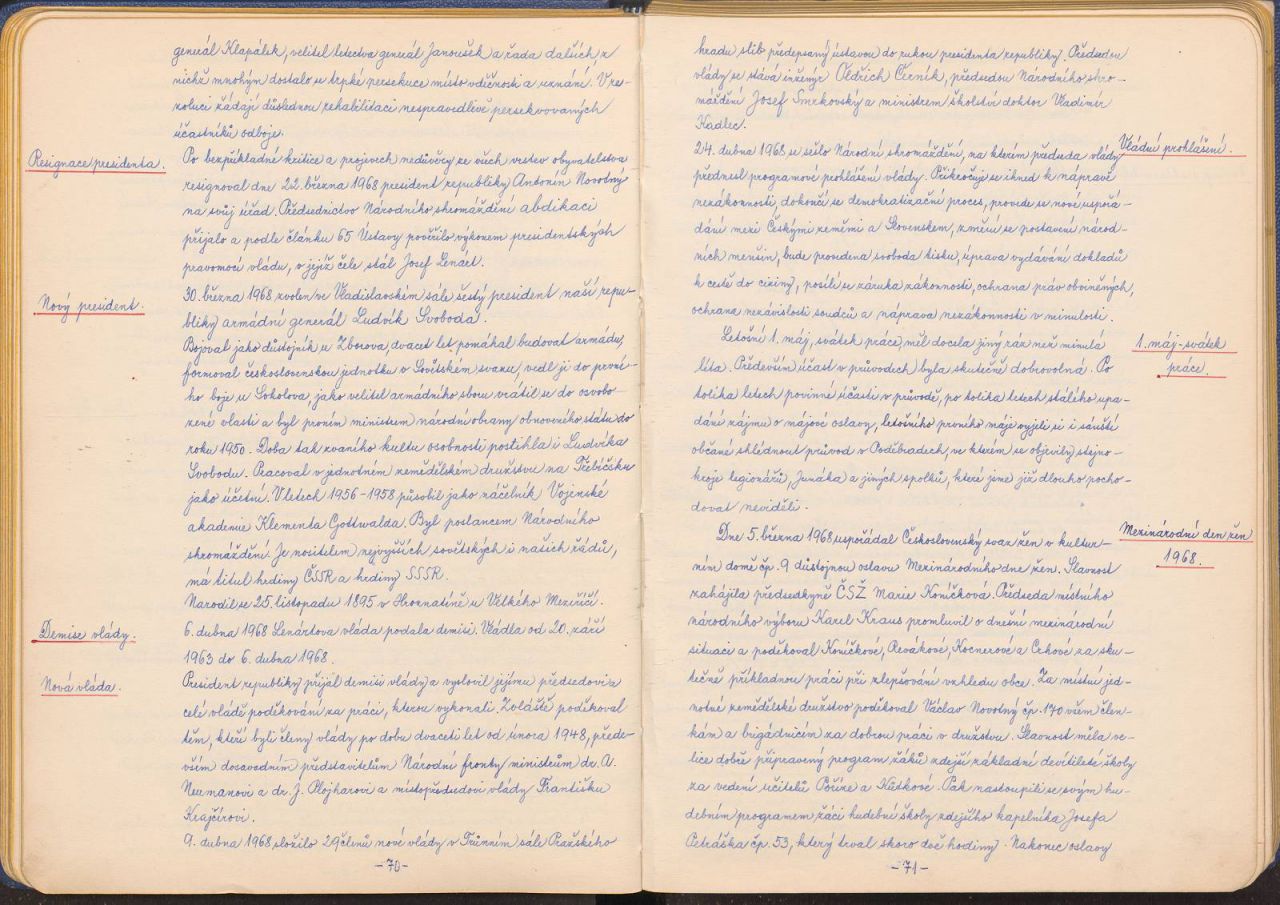 generál Klapálek, velitel letectva generál Janoušek a řada dalších, z
nichž mnohým dostalo se trpké persekuce místo vděčnosti a uznání. V re-
zoluci žádají důslednou rehabilitaci nespravedlivě persekvovaných
účastníků odboje.
Resignace presidenta.
Po bezpříkladné kritice a projevech nedůvěry ze všech vrstev obyvatelstva
resignoval dne 22. března 1968 president republiky Antonín Novotný
na svůj úřad. Předsednictvo Národního shromáždění abdikaci
přijalo a podle článku 65 Ústavy pověřilo výkonem presidentských
pravomocí vládu, v jejíž čele stál Josef Lenárt.
Nový president.
30. března 1968 zvolen ve Vladislavském sále šestý president naší repu-
bliky armádní generál Ludvík Svoboda.
Bojoval jako důstojník u Zborova, dvacet let pomáhal budovat armádu,
formoval československou jednotku v Sovětském svazu, vedl ji do první-
ho boje u Sokolova, jako velitel armádního sboru vrátil se do osvobo-
zené vlasti a byl prvním ministrem národní obrany obnoveného státu do
roku 1950. Doba tak zvaného kultu osobnosti postihla i Ludvíka
Svobodu. Pracoval v jednotném zemědělském družstvu na Třebíčsku
jako účetní. V letech 1956-1958 působil jako náčelník Vojenské
akademie Klementa Gottwalda. Byl poslancem Národního
shromáždění. Je nositelem nejvyšších sovětských i našich řádů,
má titul hrdiny ČSSR a hrdiny SSSR.
Narodil se 25. listopadu 1895 v Hroznatíně u Velkého Meziříčí.
Demise vlády.
6. dubna 1968 Lenártova vláda podala demisi. Vládla od 20. září
1963 do 6. dubna 1968.
Nová vláda.
President republiky přijal demisi vlády a vyslovil jejímu předsedovi a
celé vládě poděkování za práci, kterou vykonali. Zvláště poděkoval
těm, kteří byli členy vlády po dobu dvaceti let od února 1948, přede-
vším dosavedním představitelům Národní fronty ministrům dr. A.
Neumanovi a dr. J. Plojharovi a místopředsedovi vlády Františku
Krajčírovi.
9. dubna 1968 složilo 29 členů nové vlády v Trůnním sále Pražského
-70-
hradu slib předepsaný ústavou do rukou presidenta republiky. Předsedou
vlády se stává inženýr Oldřich Černík, předsedou Národního shro-
máždění Josef Smrkovský a ministrem školství doktor Vladimír
Kadlec.
Vládní prohlášení.
24. dubna 1968 se sešlo Národní shromáždění, na kterém předseda vlády
přednesl programové prohlášení vlády. Přikročuje se ihned k nápravě
nezákonností, dokončí se demokratizační proces, provede se nové uspořá-
dání mezi Českými zeměmi a Slovenskem, změní se postavení národ-
ních menšin, bude provedena svoboda tisku, úprava vydávání dokladů
k cestě do ciziny, posílí se záruka zákonnosti, ochrana práv obviněných,
ochrana nezávislosti soudců a náprava nezákonností v minulosti.
1. máj-svátek
práce.
Letošní 1. máj, svátek práce, měl docela jiný ráz než minulá
léta. Především účast v průvodech byla skutečně dobrovolná. Po
tolika letech povinné účasti v průvodě, po tolika letech stálého upa-
dání zájmu o májové oslavy, letošního prvního máje vyjeli si i sáňští
občané shlédnout průvod v Poděbradech, ve kterém se objevily stejno-
kroje legionářů, Junáka a jiných spolků, které jsme již dlouho pocho-
dovat neviděli.
Mezinárodní den žen
1968.
Dne 5. března 1968 uspořádal Československý svaz žen v kultur-
ním domě čp. 9 důstojnou oslavu Mezinárodního dne žen. Slavnost
zahájila předsedkyně ČSŽ Marie Koníčková. Předseda místního
národního výboru Karel Kraus promluvil o dnešní mezinárodní
situaci a poděkoval Koníčkové, Řevákové, Kocnerové a Crhové za sku-
tečně příkladnou práci při zlepšování vzhledu obce. Za místní jed-
notné zemědělské družstvo poděkoval Václav Novotný čp. 170 všem člen-
kám a brigádnicím za dobrou práci v družstvu. Slavnost měla ve-
lice dobře připravený program žáků zdejší základní devítileté školy
za vedení učitelů Poříze a Kůtkové. Pak nastoupili se svým hu-
debním programem žáci hudební školy zdejšího kapelníka Josefa
Petráška čp. 53, který trval skoro dvě hodiny. Nakonec oslavy
-71-